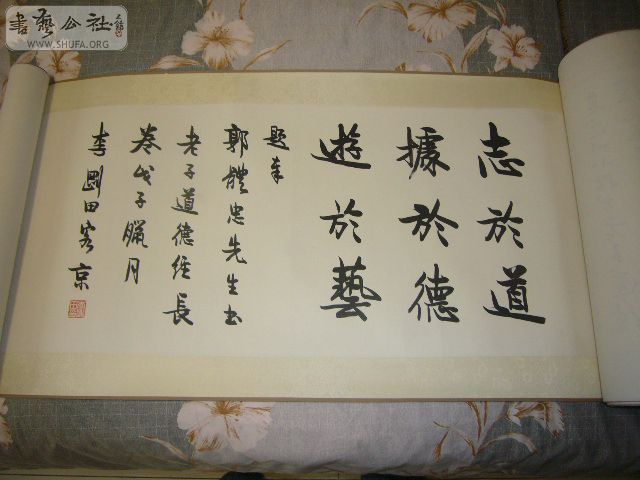 志於道
據於德
遊於藝
題奉
郭體忠先生书
老子道德经長
卷戊子臘月
李剛田客京
書藝公社
WWW.SHUFA.ORG